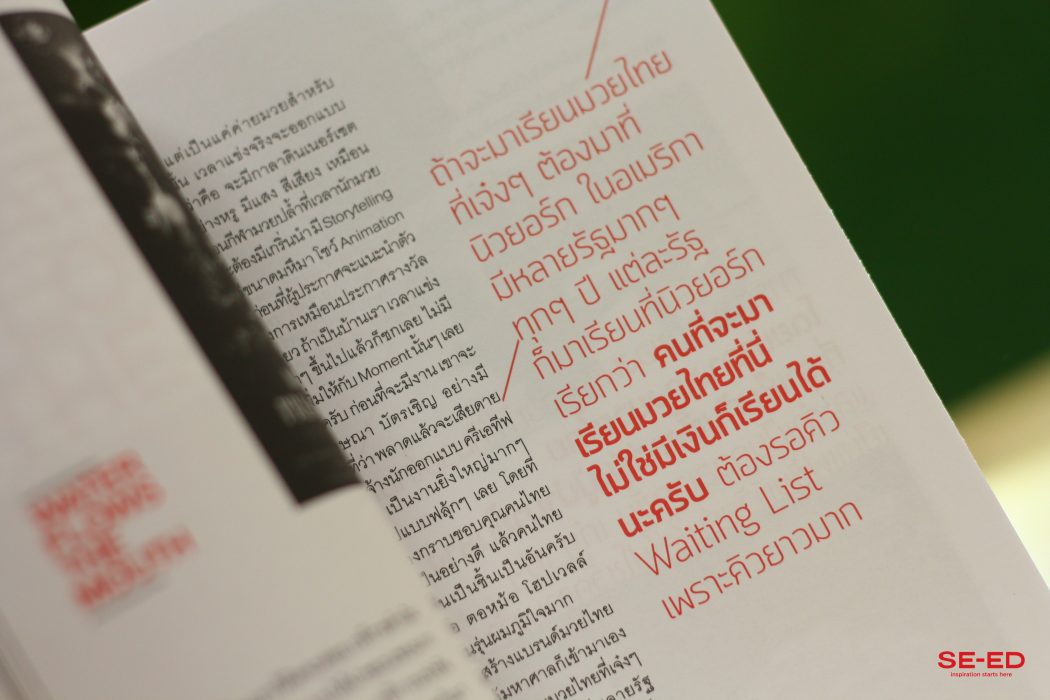 WATER
FLOWS
THE
MOUTH
แต่เป็นแค่ค่ายมวยสำหรับ
เวลาแข่งจริงจะออกแบบ
คือ จะมีกาลาดินเนอร์เซต
หรู มีแสง สีเสียง เหมือน
กีฬามวยปล้ำที่เวลานักมวย
ต้องมีเกริ่นนำ มี Storytelling
ขนาดมหึมา โชว์ Animation
ก่อนที่ผู้ประกาศจะแนะนำตัว
การเหมือนประกาศรางวัล
ถ้าเป็นบ้านเรา เวลาแข่ง
ขึ้นไปแล้วก็ชกเลย ไม่มี
ให้กับ Moment นั้นๆ เลย
ครับ ก่อนที่จะมีงาน เขาจะ
บัตรเชิญ อย่างมี
ที่ว่าพลาดแล้วจะเสียดาย
จ้างนักออกแบบ ครีเอทีฟ
เป็นงานยิ่งใหญ่มากๆ
แบบฟลุ้กๆ เลย โดยที่
กราบขอบคุณคนไทย
เป็นอย่างดี แล้วคนไทย
เป็นชิ้นเป็นอันครับ
ตอหม้อ โฮปเวลล์
รุ่นผมภูมิใจมาก
สร้างแบรนด์มวยไทย
มหาศาลก็เข้ามาเอง
มวยไทยที่เจ๋งๆ
ถ้าจะมาเรียนมวยไทย
ที่เจ๋งๆ ต้องมาที่
นิวยอร์ก ในอเมริกา
มีหลายรัฐมากๆ
ทุกๆ ปี แต่ละรัฐ
ก็มาเรียนที่นิวยอร์ก
เรียกว่า คนที่จะมา
เรียนมวยไทยที่นี่
ไม่ใช่มีเงินก็เรียนได้
นะครับ ต้องรอคิว
Waiting List
เพราะคิวยาวมาก
SE-ED
inspiration starts here